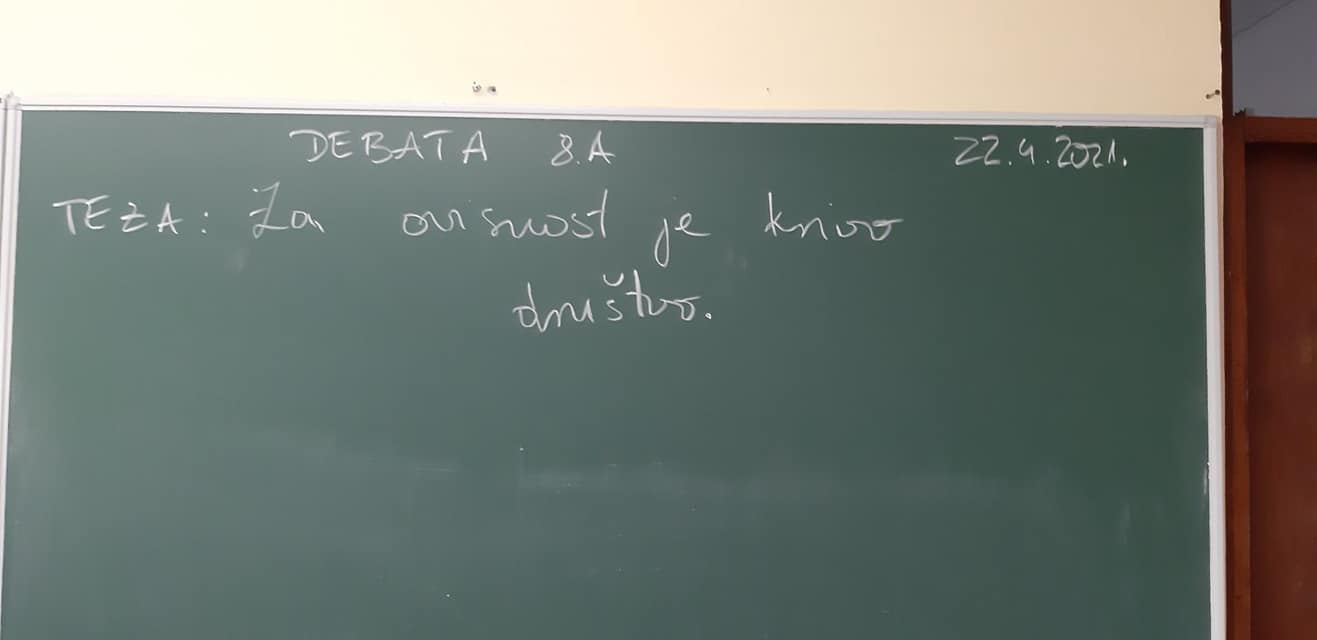 DEBATA 8.A 22.4.2021.
TEZA: Za ovisnost je krivo
društvo.